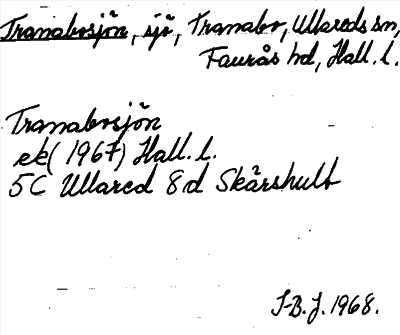 Tranabosjön, sjö, Tranabo, Ullareds sn,
Faurås hd, Hall. l.
Tranabosjön
ek (1967) Hall. l.
5C Ullared 8d Skårshult
J-B. J. 1968.